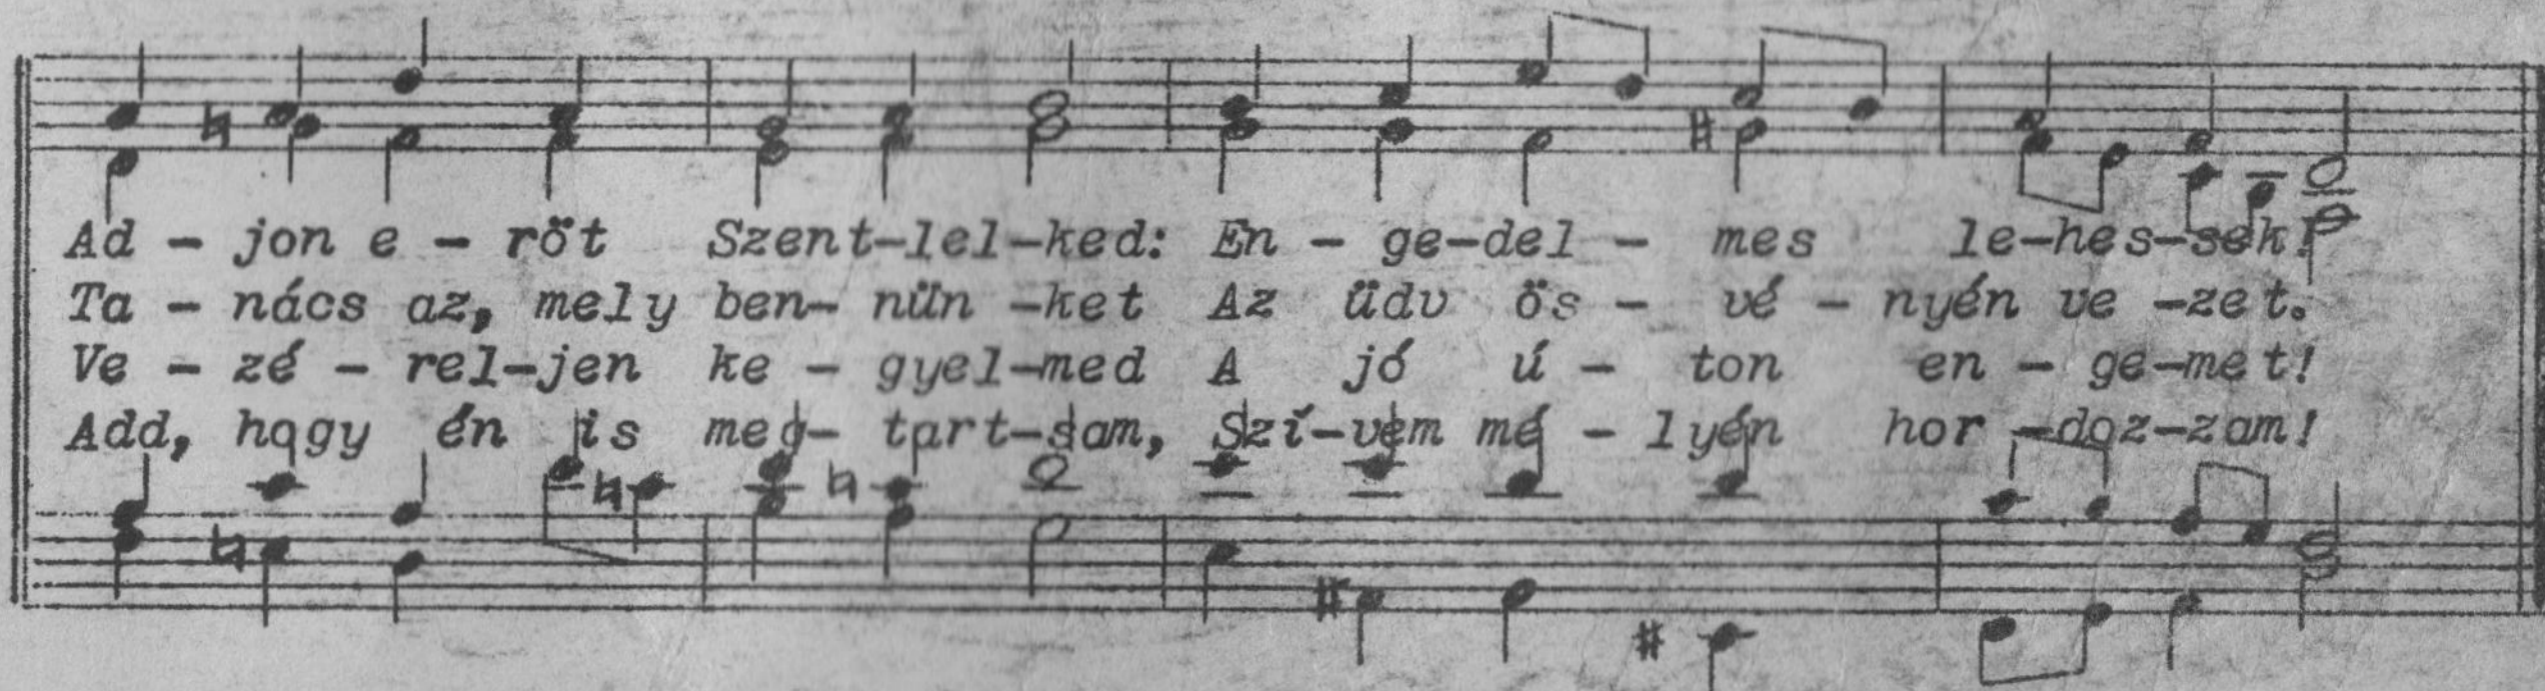 Ad - jon e - rőt Szent-lel-ked: En - ge-del - mes le-hes-sek!
Ta - nács az, mely ben- nün -ket Az üdv ös - vé - nyén ve -zet.
Ve - zé - rel-jen ke - gyel-med A jó ú - ton en - ge-met!
Add, hogy én is meg- tart-sam, Szí-vem mé - lyén hor -doz-zam!